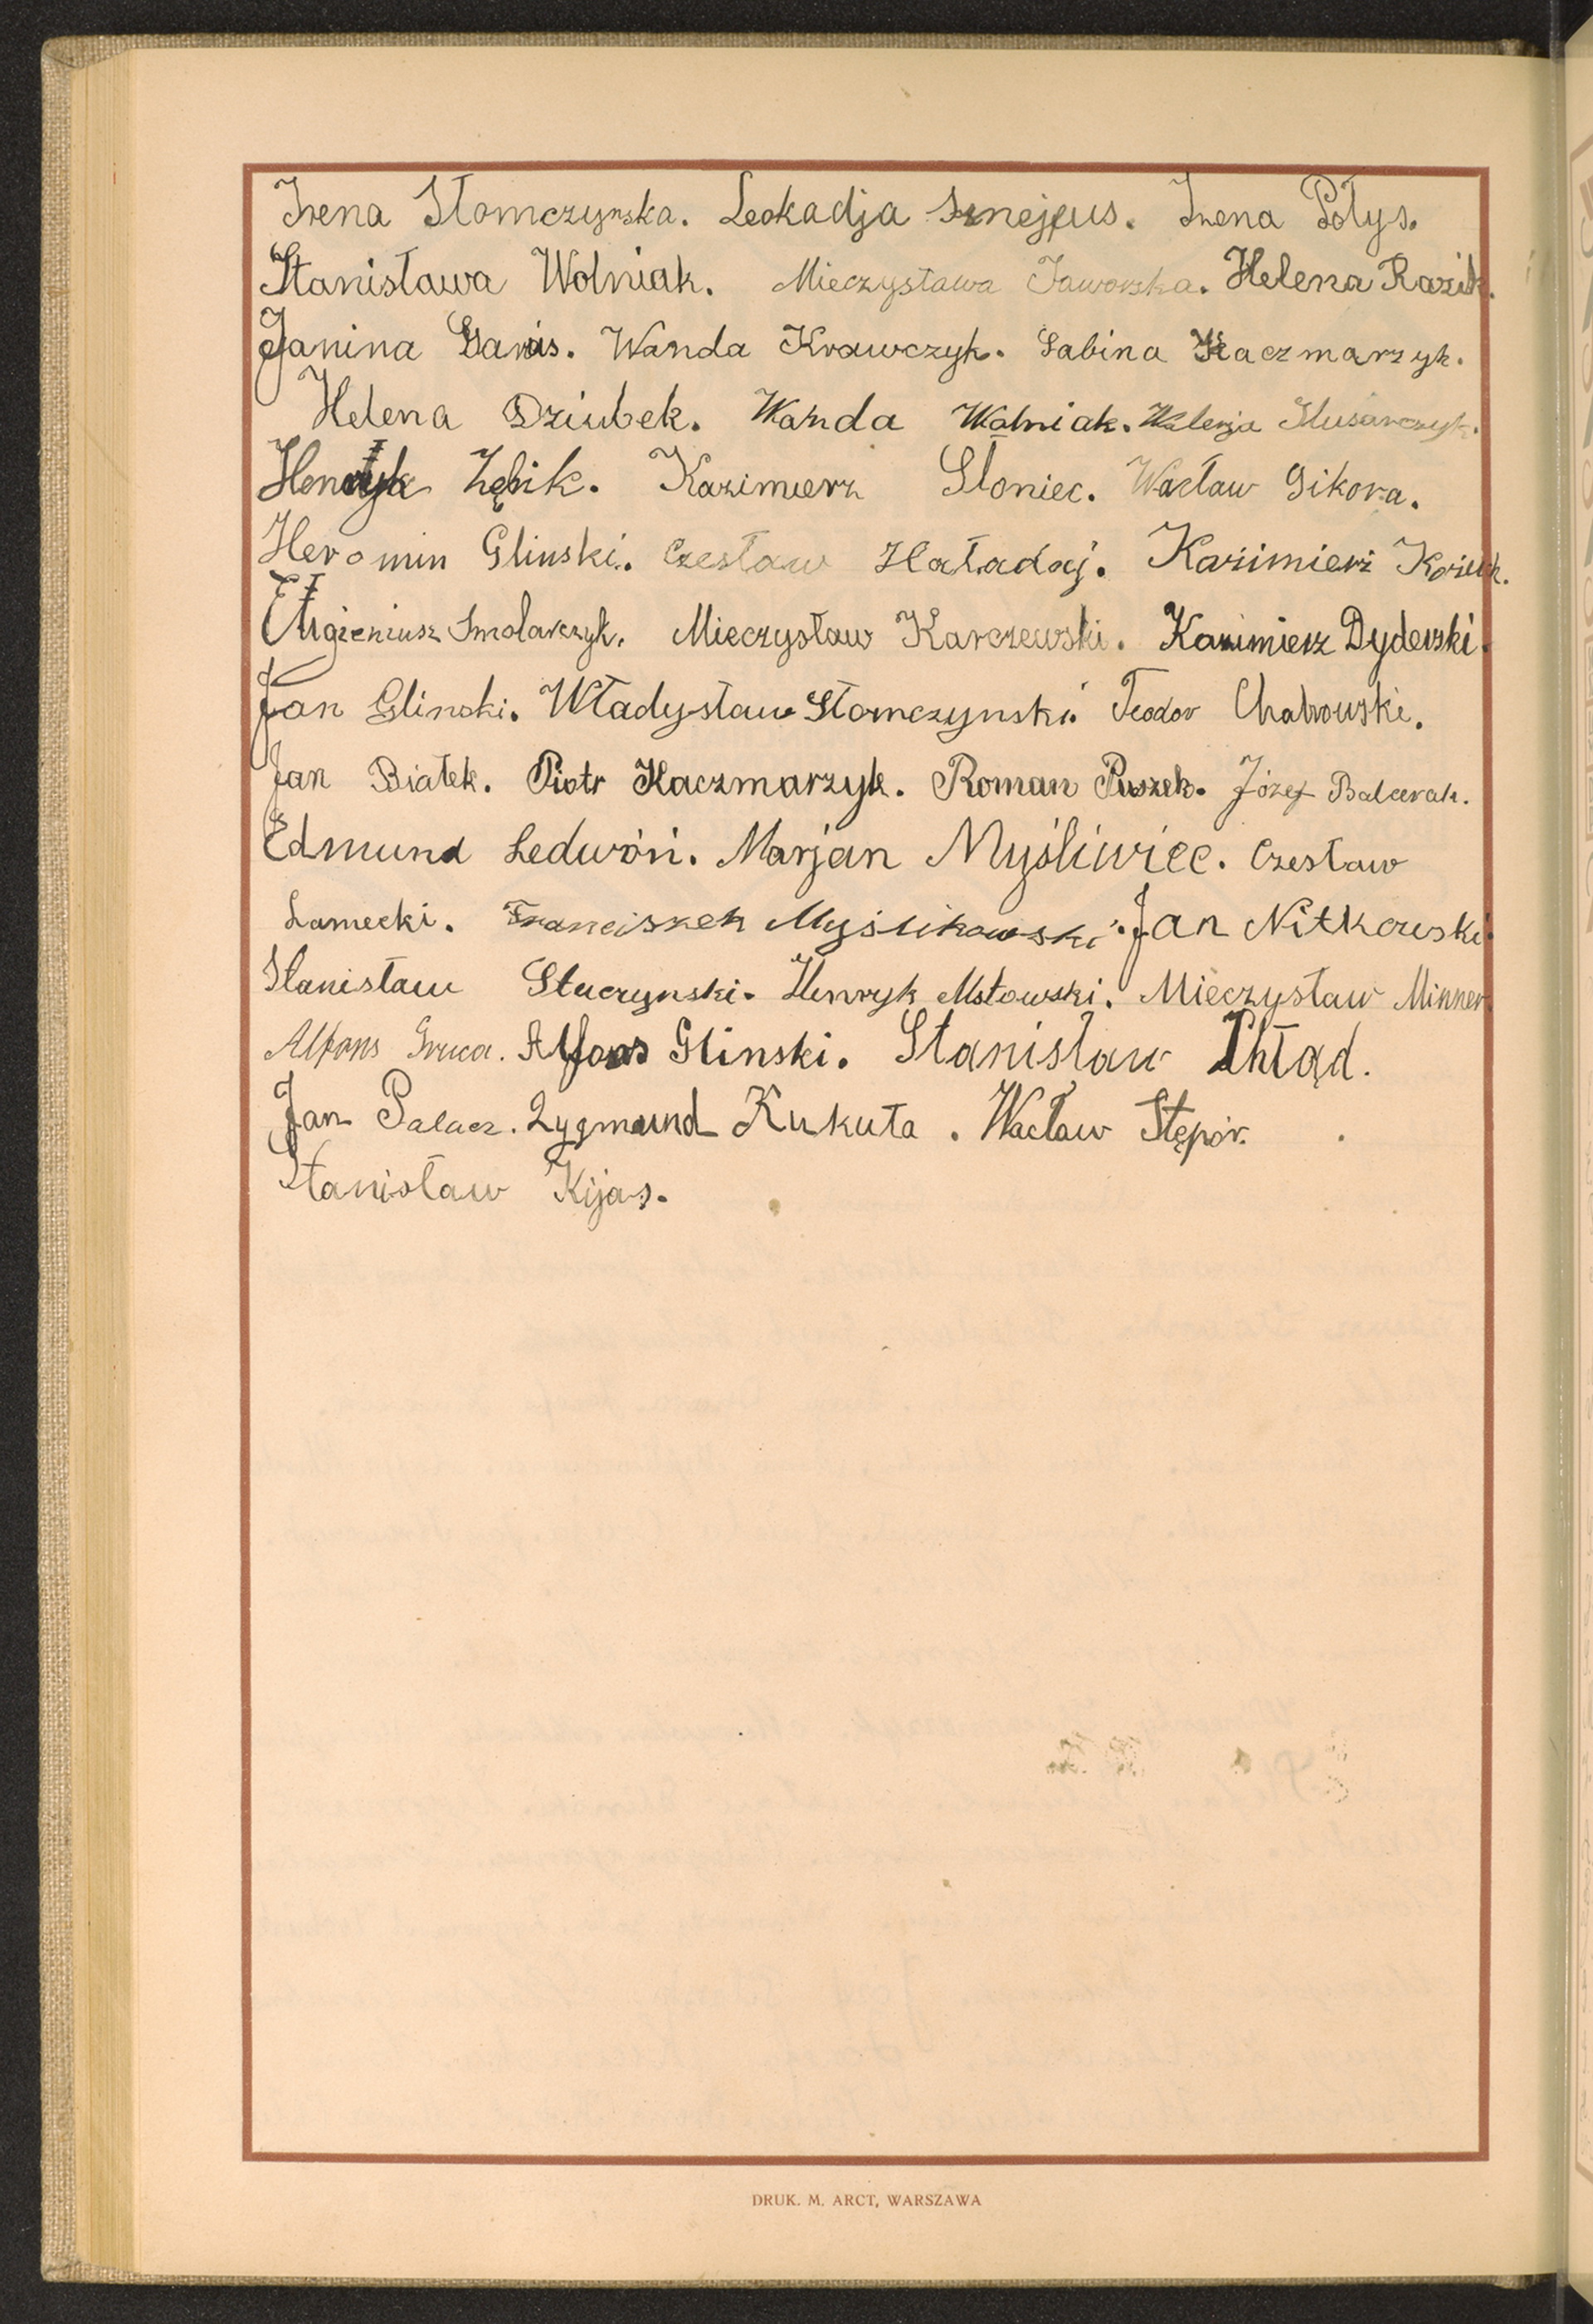 Irena Słomczynska. Leokadja Irena Połys.
Stanisława Wolniak. Mieczysława Jaworska. Helena Razik.
Janina Garus. Wanda Krawczyk. Sabina Kaczmarzyk.
Helena Dziubek. Wanda Wolniak. Walerja Slusarczyk.
Henryk Zębik. Kazimierz Słoniec. Wacław Sikora.
Heromin Glinski. Czesław Haładaj. Kazimierz
Eugieniusz Smolarczyk. Mieczysław Karczewski. Kazimierz Dyderski.
Jan Glinski. Władysław Słomczynski. Teodor Chabowski.
Jan Białek. Piotr Kaczmarzyk. Roman Puszek. Józef
Edmund Ledwoń. Marjan Myśliwiec. Czesław
Łamecki. Franciszek Myślikowski. Jan Nitkowski.
Stanisław Słuczynski. Henryk Msłowski. Mieczysław Minner.
Alfons Gruca. Alfons Glinski. Stanisław Chłąd.
Jan Palacz. Zygmund Kukuła. Wacław Stępór.
Stanisław Kijas.
DRUK. M. ARCT, WARSZAWA